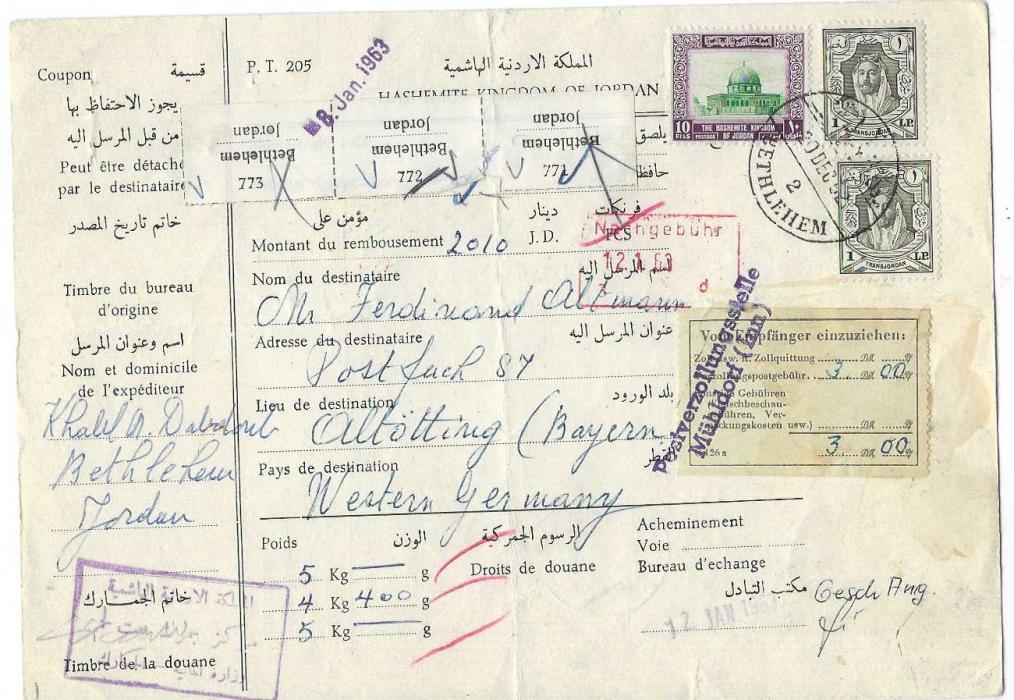 Coupon قسيمة
يجوز الاحتفاظ بها
من قبل المرسل اليه
Peut être détaché
par le destinataire
خاتم تاريخ المصدر
Timbre du bureau
d'origine
اسم وعنوان المرسل
Nom et domicile
de l'expéditeur
Khalil A. Dabdoub
Bethlehem
Jordan
خاتم الجمارك
Timbre de la douane
P. T. 205
المملكة الاردنية الهاشمية
HASHEMITE KINGDOM OF JORDAN
8. Jan. 1963
Jordan
Bethlehem
773
Jordan
Bethlehem
772
Jordan
Bethlehem
771
يلصق
مؤمن على دينار
Montant du remboursement 2010 J.D. FCS
Nachgebühr
12.1.63
d
Nom du destinataire اسم المرسل اليه
Mr Ferdinand Altmann
Adresse du destinataire عنوان المرسل اليه
Postfach 87
Lieu de destination بلد الورود
Altötting (Bayern
Pays de destination
Western Germany
Poids الوزن
5 Kg g
4 Kg 400 g
5 Kg g
الرسوم الجمركية
Droits de douane
Acheminement
Voie
Bureau d'échange
مكتب التبادل
12 JAN 1963
Gesch Ang.
10 FILS POSTAGE
THE HASHEMITE KINGDOM
OF JORDAN
1 L.P.
TRANSJORDAN
1 L.P.
TRANSJORDAN
BETHLEHEM
2
Postverzollungsstelle
Mühldorf (Inn)
Vom Empfänger einzuziehen:
Zollquittung DM Pf
3 00
Gebühren
usw.)
3 DM 00 Pf